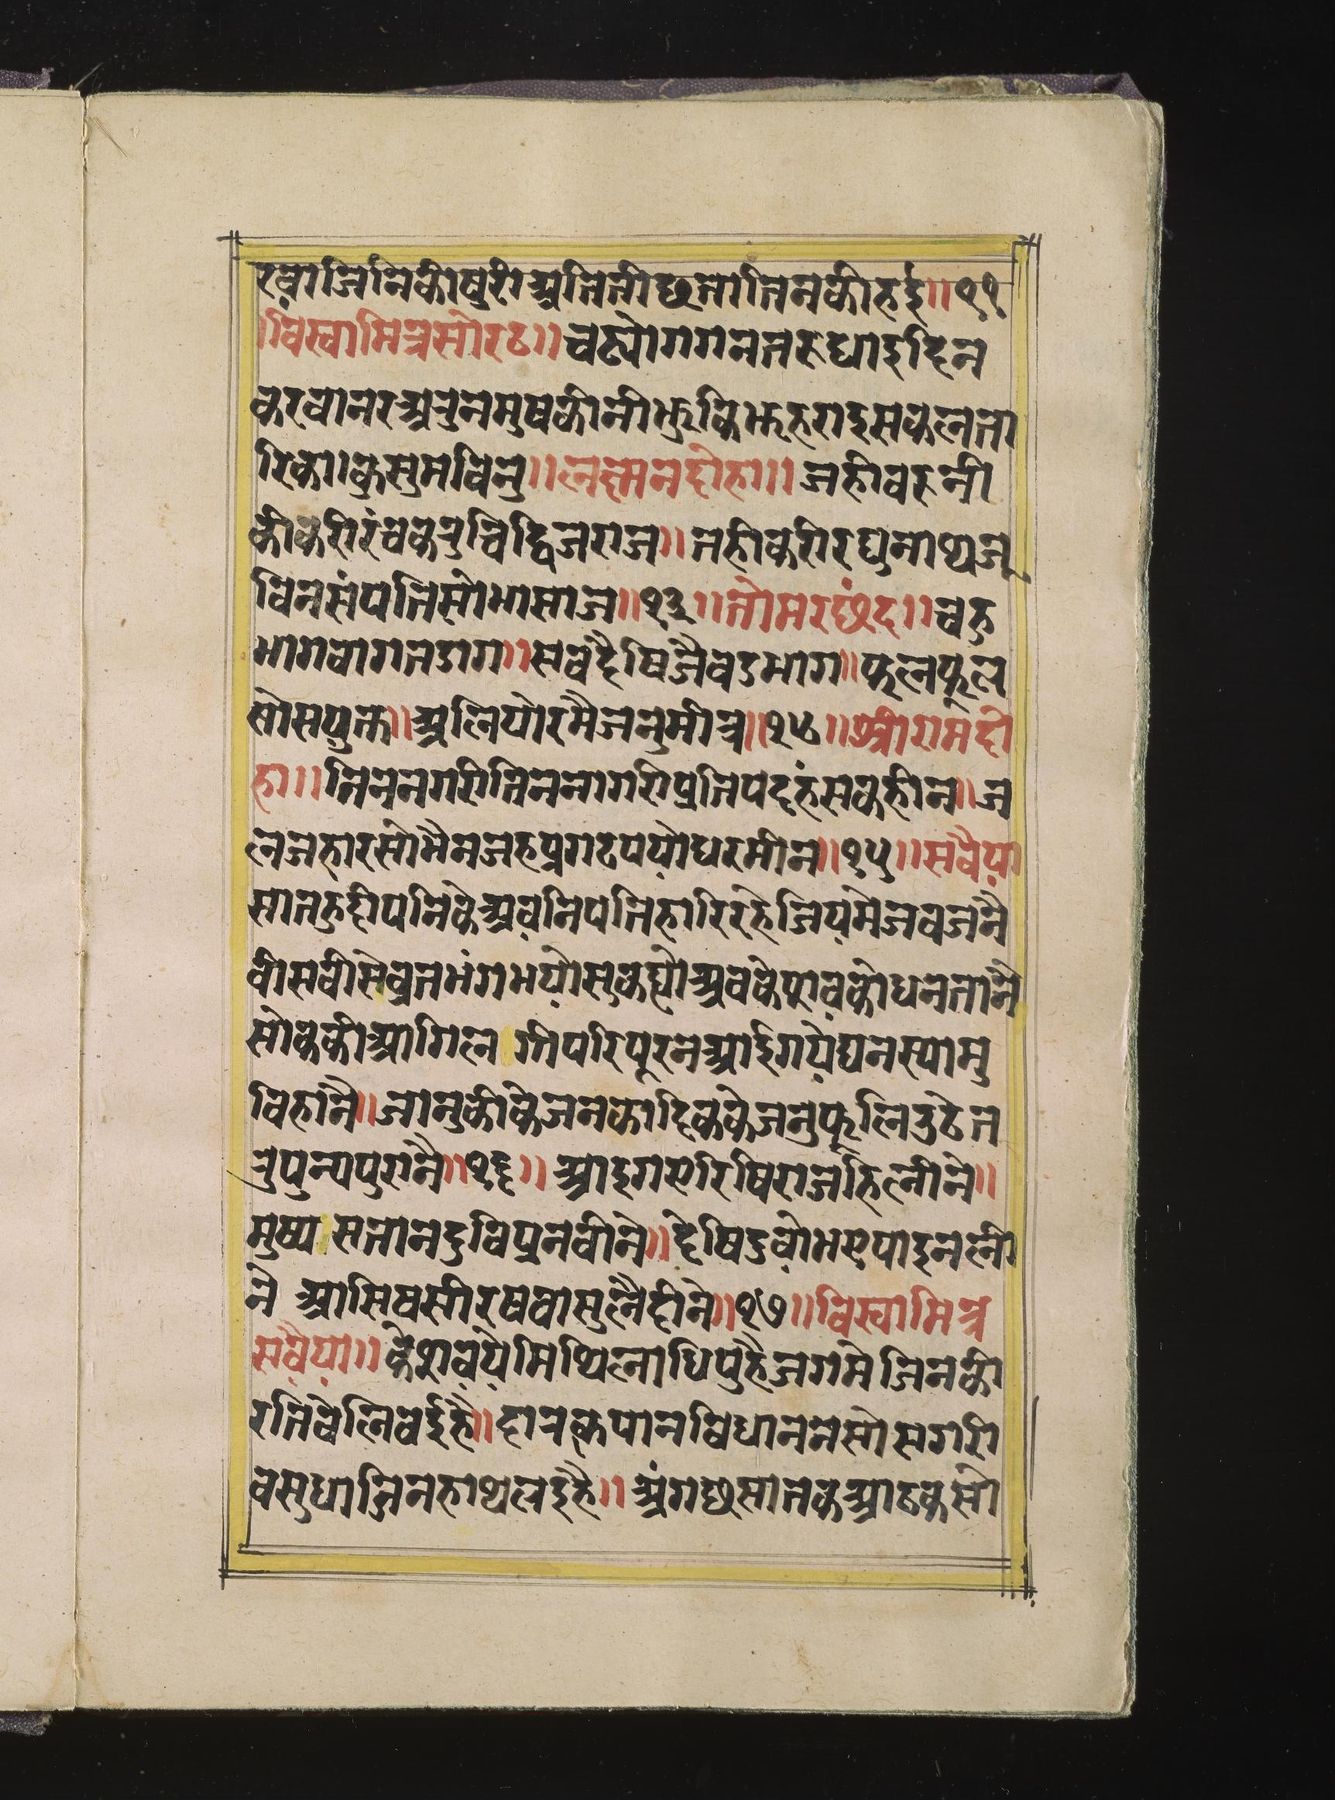 रवाजिनिकीषरीअतितीछतातिनकीहई॥११
।विस्वामित्रसोरठ॥चढ्योगगनतरुधाइदिन
करवानरअरुनमुषकीनीझुकिझहराइसकलता
रिका।कुसुमविनु॥लछमनदोहा॥जहीवरुनी
कीकरीरंचकरुचिद्विजराज॥तहीकरीरघुनाथजू
विनसंपतिसोभासाज॥१३॥तोमरछंद॥चहु
भागवागतडाग॥सवदैषिजैवडभाग॥फूलफूल
सोसपुक्त॥अलियोरमैजनुमीत्र॥१४॥श्रीरामदो
हा॥तिननगरीतिननागरीप्रतिपदहंसकहीन॥ज
लजहारसोभैनजहप्रगटपयोधरमीन॥१५॥सवैया
सातहुदीपनिकेअवनिपतिहारिरहेजियमेजवजनै
वीसवीसेव्रतभंगभयोसुकह्योअवकेषावकोधनतानै
सोककीआगिल गीपरिपूरनआईगयेघनस्यामु
विहानै॥जानुकीकेजनकादिककेजनुफूलिउठेत
रुपुन्यपुरानै॥१६॥आइगएरिषिराजहिलीने॥
मुष्य सतानदुविप्रनवीने॥देषिडवोभएपाइनली
ने आसिषसीरषवासुलैदीने॥१७॥विस्वामित्र
सवैया॥केशवयेमिथिलाधिपुहैजगमेजिनकी
रतिवेलिवईहै॥दानकृपानविधाननसोसगरी
वसुधाजिनहाथलइहै॥अंगछसातकआठकसो